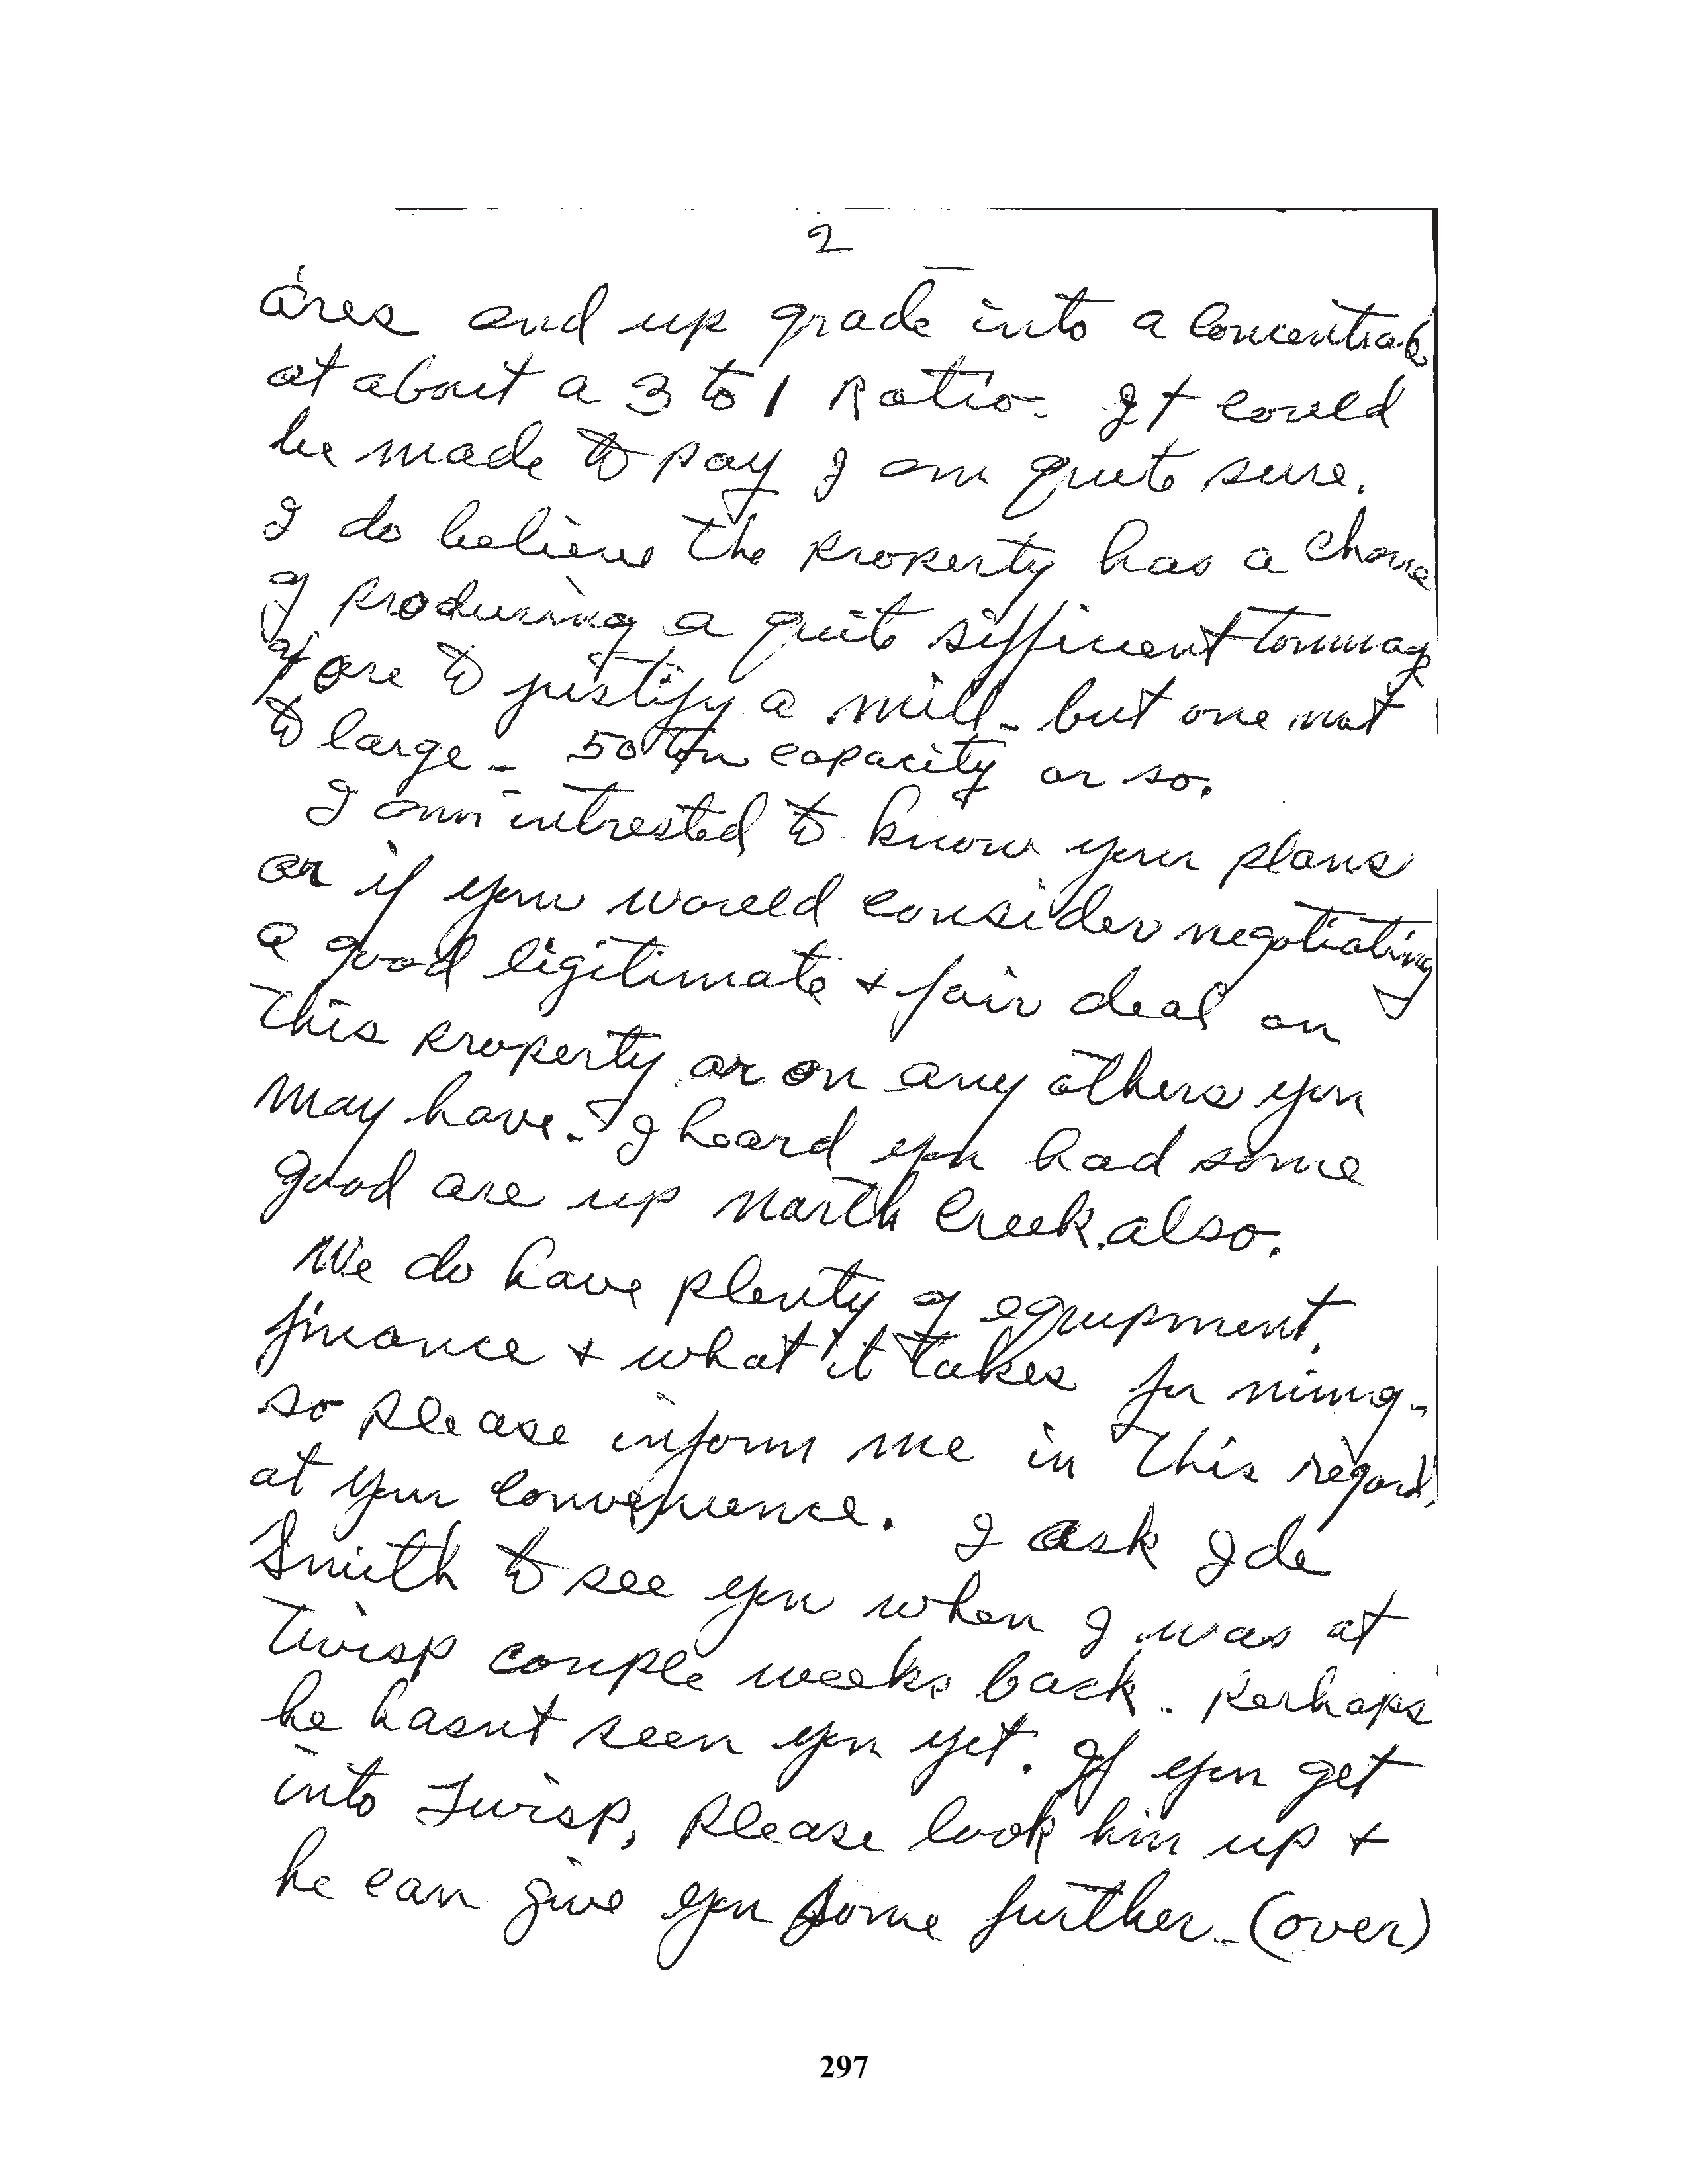 2
ores and up grade into a concentrate
at about a 3 to 1 Ratio. It could
be made to pay I am quite sure.
I do believe the property has a chance
of producing a quite sifficent tonnage
of ore to justify a mill - but one not
to large - 50 ton capacity or so.
I am intrested to know your plans
or if you would consider negotiating
a good ligitimate + fair deal on
this property or on any others you
may have. I heard you had some
good ore up North Creek also.
We do have plenty of equipment,
finance + what it takes for mining -
so please inform me in this regard,
at your convenience. I ask Ide
Smith to see you when I was at
Twisp couple weeks back. Perhaps
he hasnt seen you yet. If you get
into Twisp, please look him up +
he can give you some further - (over)
297